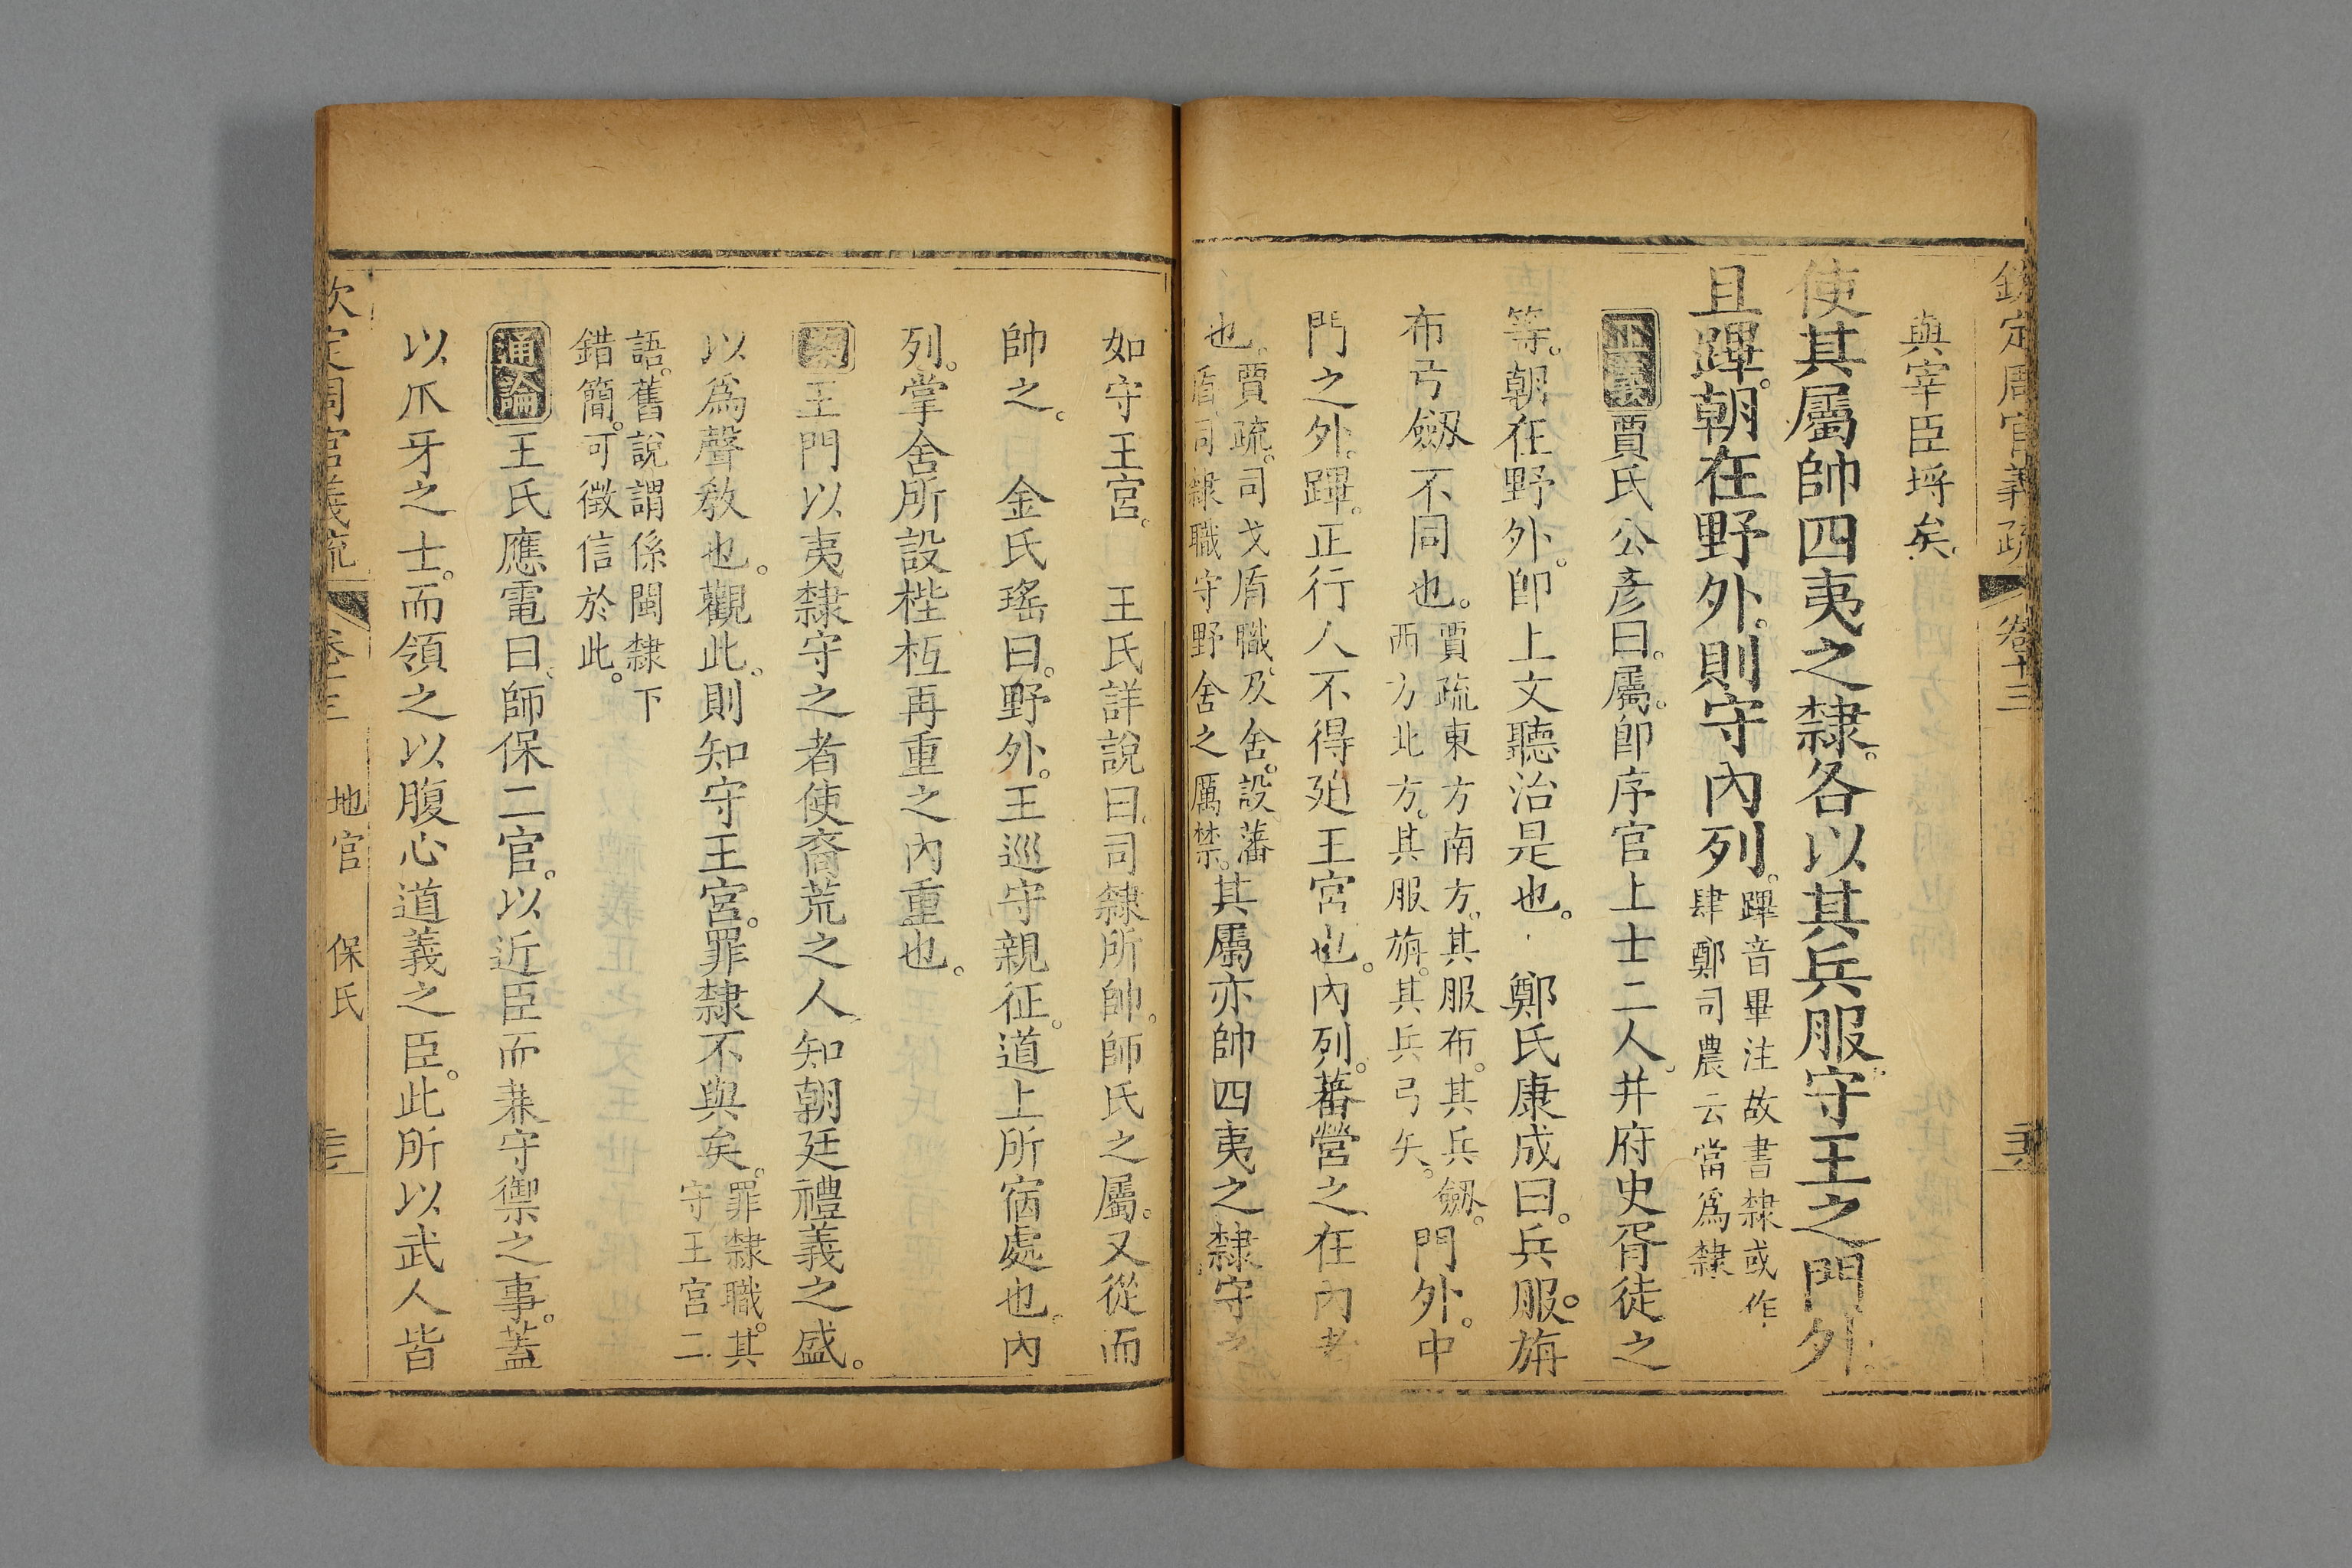 欽定周官義疏 卷十三
與宰臣埒矣。
使其屬帥四夷之隸。各以其兵服。守王之門外。
且蹕。朝在野外。則守內列。蹕音畢注故書隸或作
肆鄭司農云當爲隸
正義賈氏公彥曰。屬。卽序官上士二人。幷府史胥徒之
等。朝在野外。卽上文聽治是也。 鄭氏康成曰。兵服。旃
布弓劔不同也。賈疏東方南方。其服布。其兵劔。
西方北方。其服旃。其兵弓矢。門外。中
門之外。蹕。正行人不得廹王宮也。內列。蕃營之在內者
也。賈疏。司戈盾職。及舍。設藩
盾。司隸職守野舍之厲禁。其屬亦帥四夷之隸守之
如守王宮。 王氏詳說曰。司隸所帥。師氏之屬。又從而
帥之。 金氏瑤曰。野外。王巡守親征。道上所宿處也。內
列。掌舍所設梐枑再重之內重也。
案王門以夷隸守之者使裔荒之人。知朝廷禮義之盛。
以爲聲敎也。觀此。則知守王宮。罪隸不與矣。罪隸職。其
守王宮二
語。舊說謂係閩隸下
錯簡。可徵信於此。
通論王氏應電曰。師保二官。以近臣而兼守禦之事。蓋
以爪牙之士。而領之以腹心道義之臣。此所以武人皆
欽定周官義疏 卷十三 地官 保氏